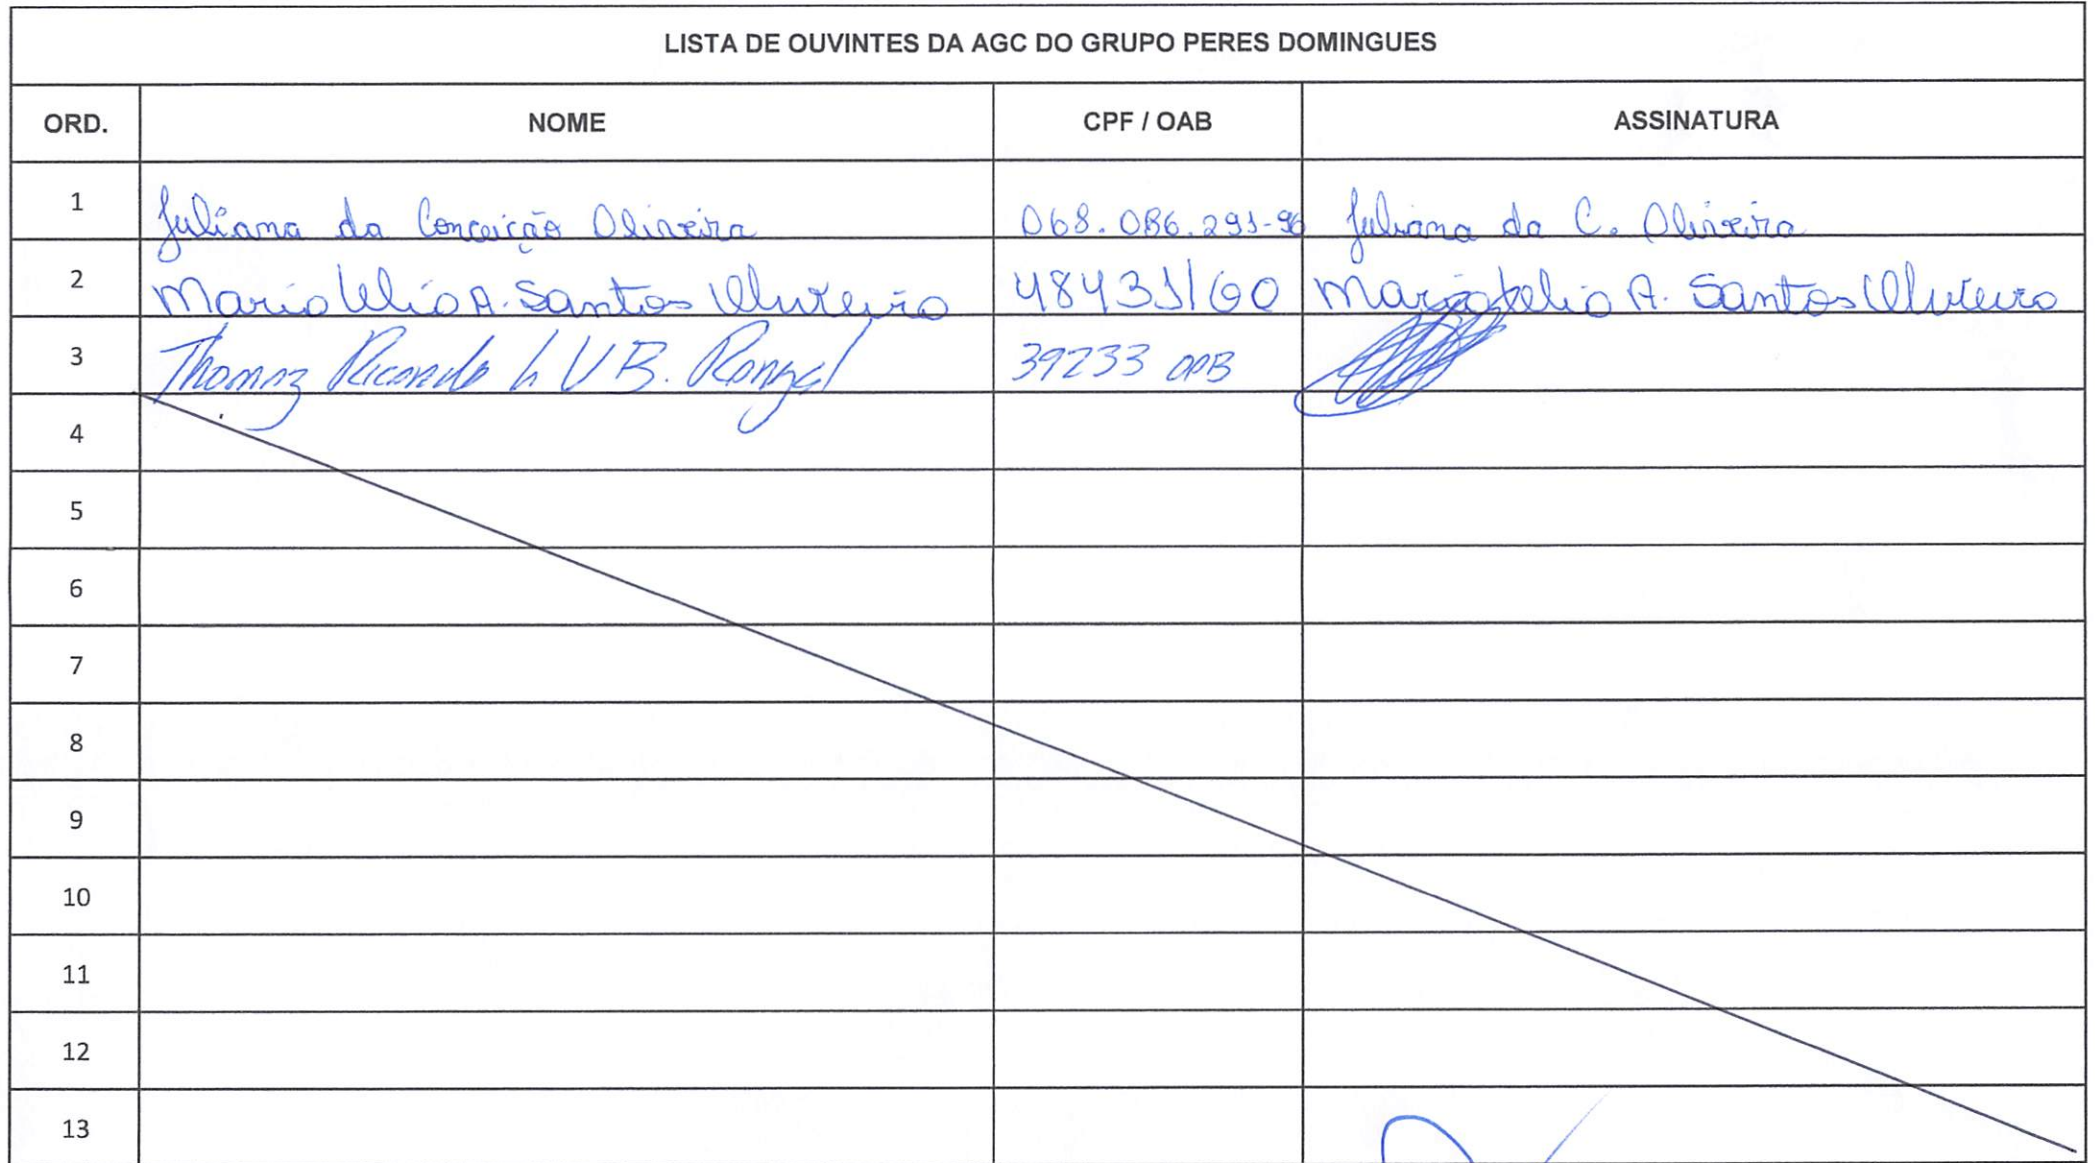 LISTA DE OUVINTES DA AGC DO GRUPO PERES DOMINGUES
ORD. NOME CPF / OAB ASSINATURA
1 Juliana da Conceição Oliveira 068.086.291-96 Juliana da C. Oliveira
2 A. Santos 48431/GO A. Santos
3 Thomaz Ricardo L V B. Rangel 39233 OAB
4
5
6
7
8
9
10
11
12
13